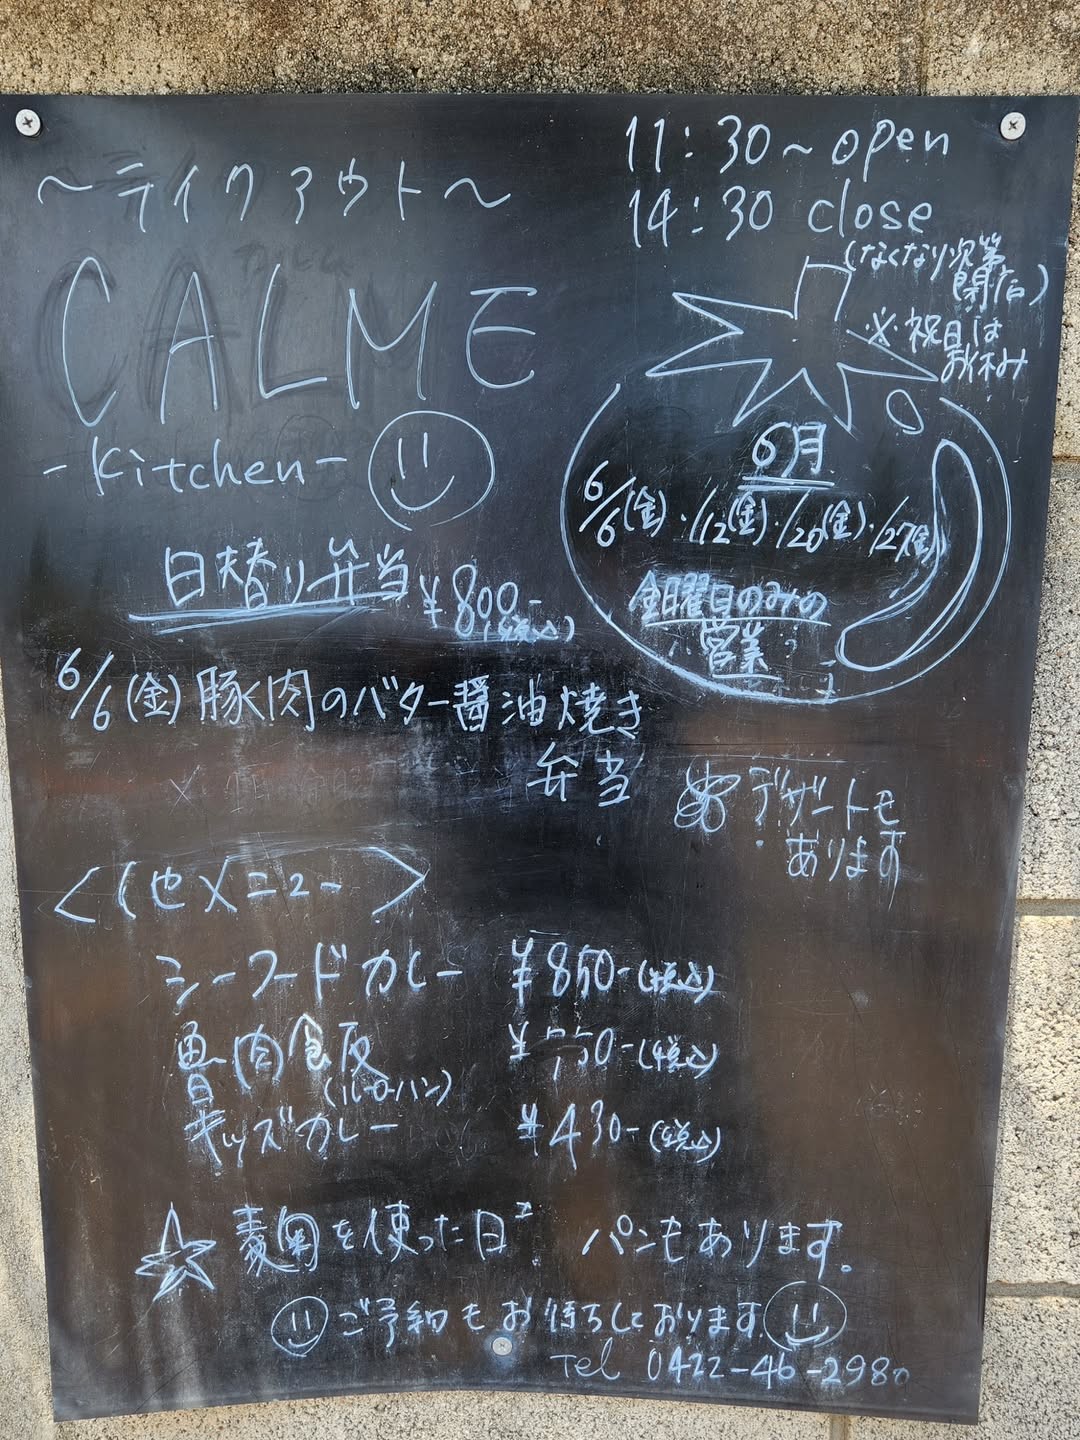 ～テイクアウト～
CALME
-Kitchen-
11:30～open
14:30 close
(なくなり次第
閉店)
※祝日は
お休み
6月
6/6(金)・/12(金)・/20(金)・/27(金)
金曜日のみの
営業
日替り弁当 ¥800-
(税込)
6/6(金)豚肉のバター醤油焼き
弁当
デザートも
あります
〈他メニュー〉
シーフードカレー ¥850-(税込)
魯肉飯 ¥750-(税込)
(ルーローハン)
キッズカレー ¥430-(税込)
を使った日 パンもあります。
ご予約もお待ちしております
Tel 0422-46-2980